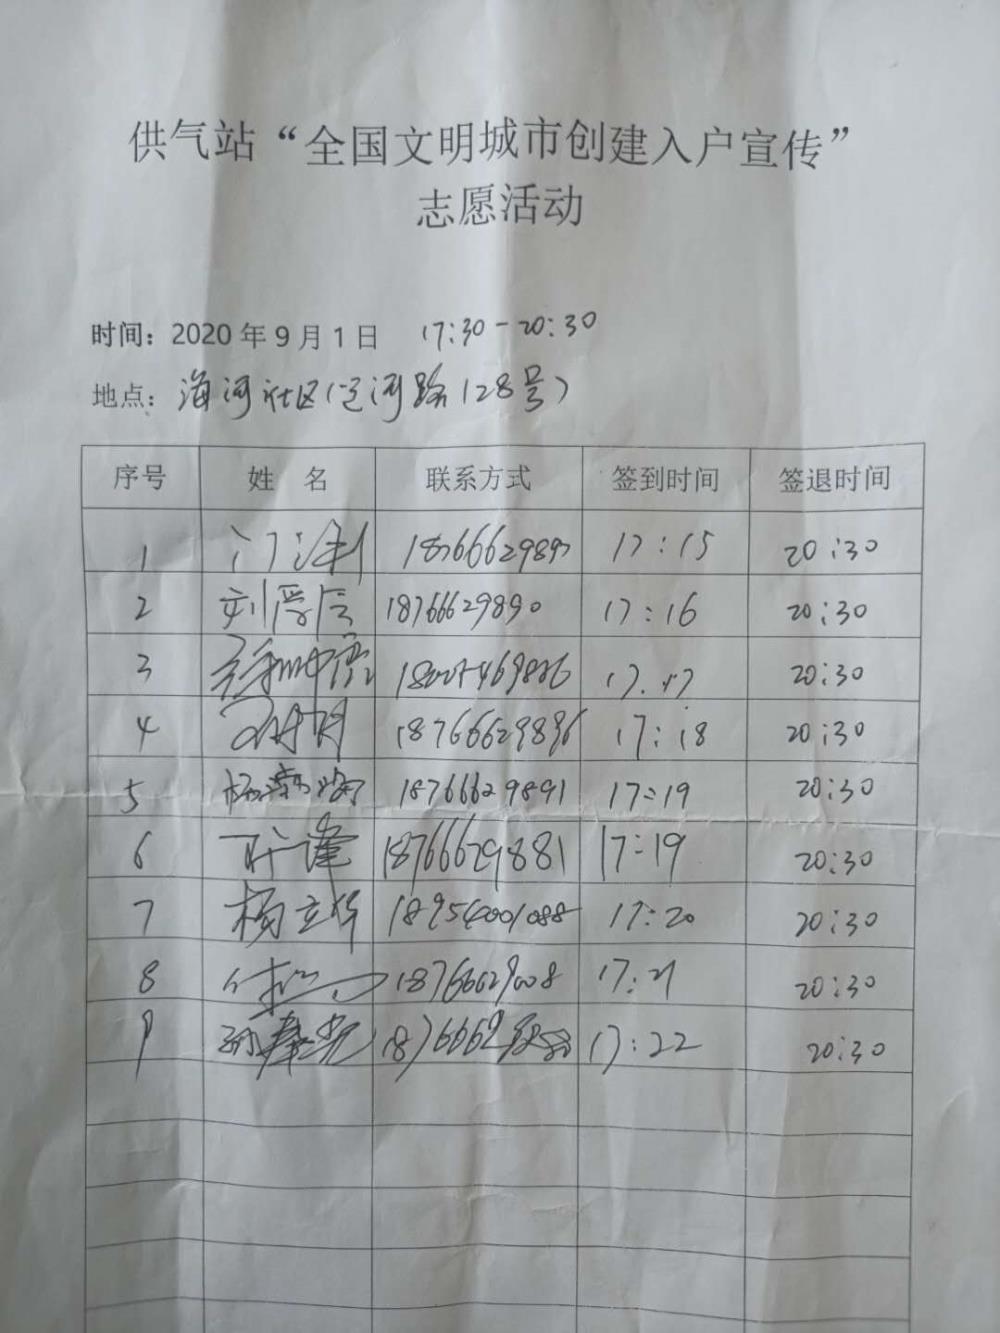 供气站“全国文明城市创建入户宣传”
志愿活动
时间：2020年9月1日 17:30-20:30
地点：海河社区(运河路128号)
序号 姓名 联系方式 签到时间 签退时间
1 17:15 20:30
2 18766629890 17:16 20:30
3 17:17 20:30
4 18766629896 17:18 20:30
5 18766629891 17:19 20:30
6 18766629881 17:19 20:30
7 杨立华 18954001088 17:20 20:30
8 17:21 20:30
9 17:22 20:30